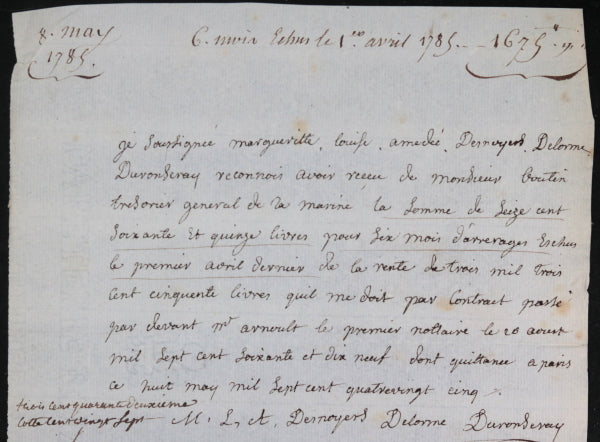 8. may
1785.
6. mois Echus le 1er avril 1785. — 1675
je soussignée margueritte, louise, amedée, Desnoyers, Delorme
Duronseray reconnois avoir receu de monsieur boutin
tresorier general de la marine la somme de seize cent
soixante et quinze livres pour six mois d'arrerages Eschus
le premier avril dernier de la rente de trois mil trois
cent cinquente livres quil me doit par Contract passé
par devant mr arnoult le premier nottaire le 20 aoust
mil sept cent soixante et dix neuf dont quittance a paris
ce huit may mil sept cent quatrevingt cinq
trois cent quarante deuxieme
Cotte Cent vingt sept
M. L. A. Desnoyers Delorme Duronseray